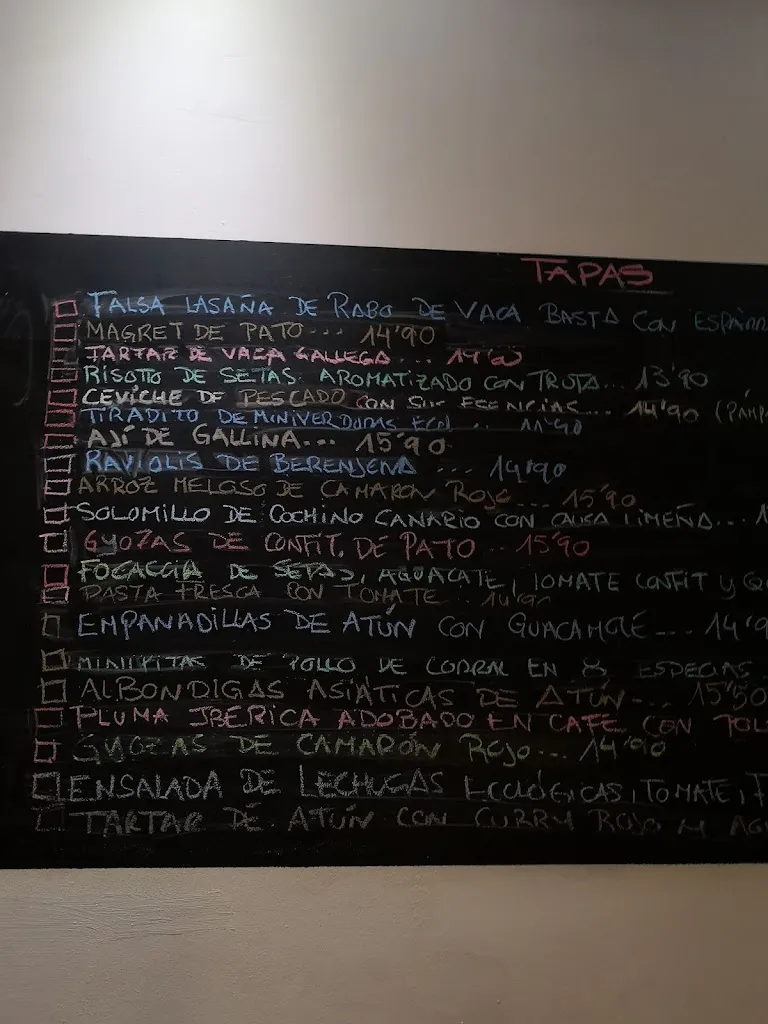 TAPAS
FALSA LASAÑA DE RABO DE VACA BASTA CON ESPÁRR
MAGRET DE PATO... 14'90
TARTAR DE VACA GALLEGA...
RISOTTO DE SETAS AROMATIZADO CON TRUFA... 13'90
CEVICHE DE PESCADO CON SUS ESENCIAS... 14'90 (PAMPA
TIRADITO DE MINIVERDURAS ECO...
AJÍ DE GALLINA... 15'90
RAVIOLIS DE BERENJENA ... 14'90
ARROZ MELOSO DE CAMARON ROJO... 15'90
SOLOMILLO DE COCHINO CANARIO CON CAUSA LIMEÑA... 1
GYOZAS DE CONFIT. DE PATO.. 15'90
FOCACCIA DE SETAS, AGUACATE, TOMATE CONFIT Y QU
PASTA FRESCA CON TOMATE.. 14'90
EMPANADILLAS DE ATÚN CON GUACAMOLE... 14'9
MINIPITAS DE POLLO DE CORRAL EN 8 ESPECIAS
ALBONDIGAS ASIÁTICAS DE ATÚN... 15'50
PLUMA IBERICA ADOBADO EN CAFE CON TOL
GYOZAS DE CAMARÓN ROJO... 14'90
ENSALADA DE LECHUGAS ECOLÓGICAS, TOMATE, F
TARTAR DE ATÚN CON CURRY ROJO Y AG